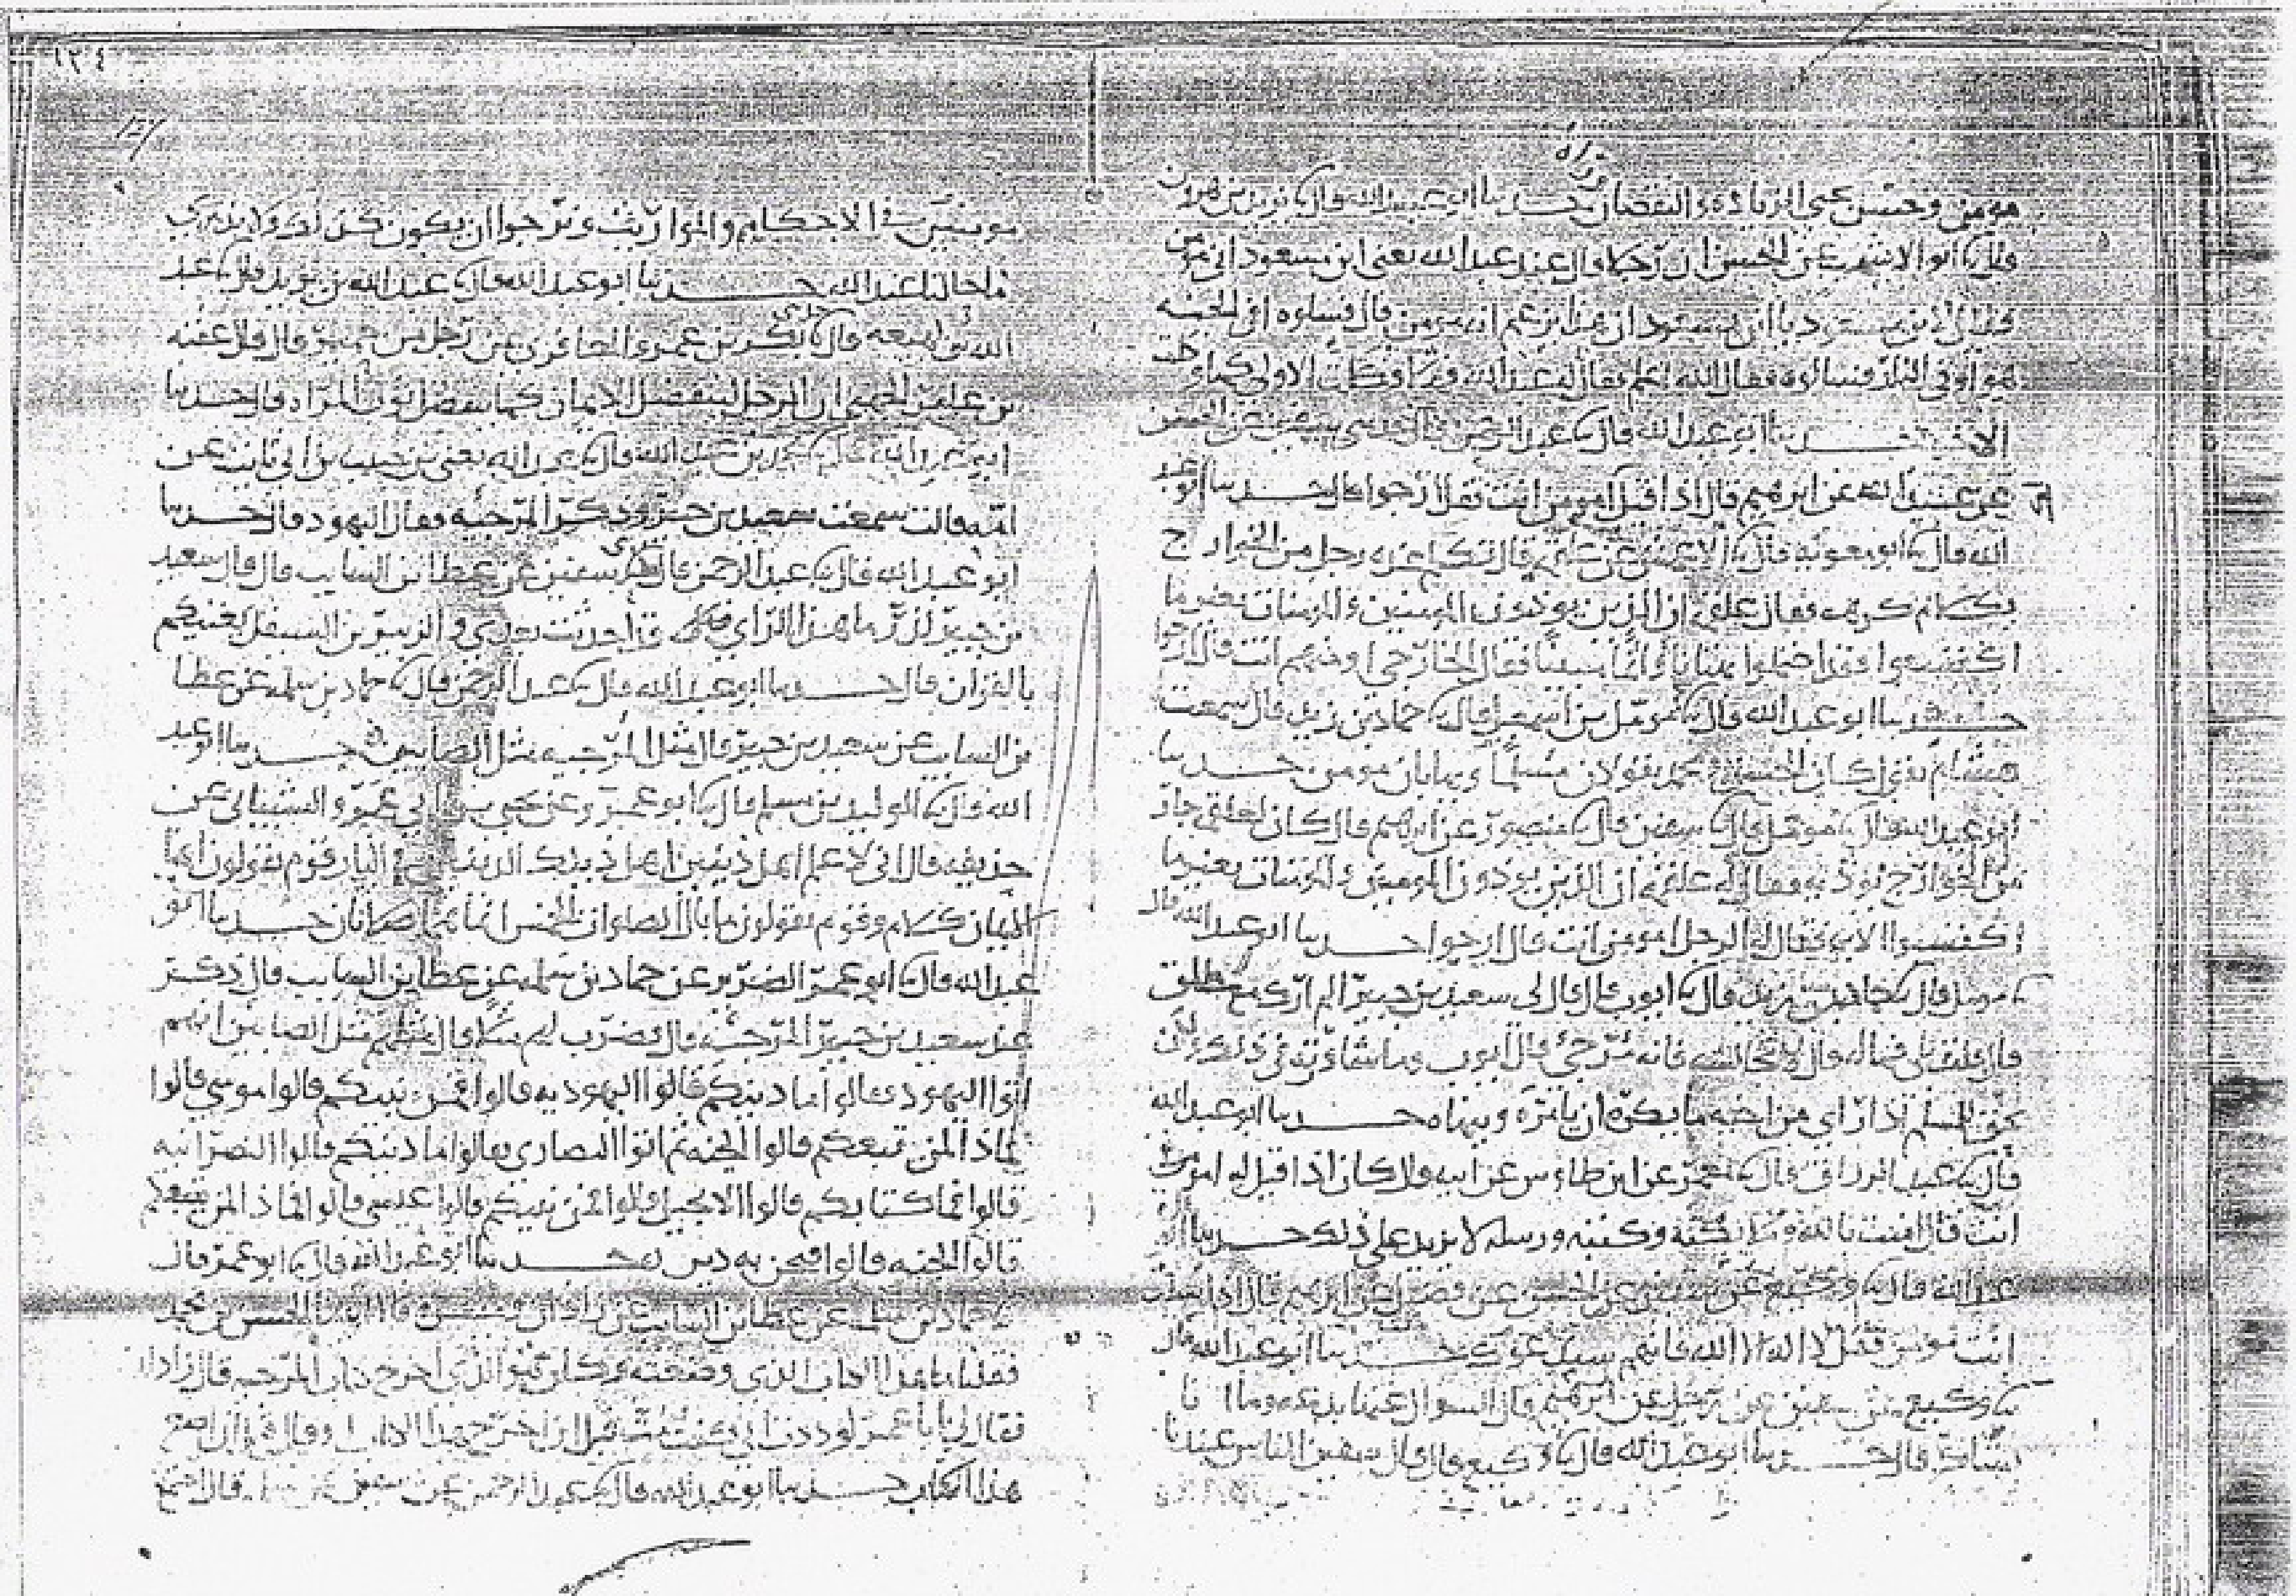 ١٣٤
مومن وحسن يحيى الزيادة والنقصان ورآه حدثنا ابو عبد الله قال يزيد بن هرون
قال ابو الاشهب عن الحسن ان رجلا قال عند عبد الله يعني ابن مسعود اني مومن
فقال لابن مسعود يا ان هذا يزعم انه مومن قال فسلوه افي الجنه
هو او في النار فسالوه فقال الله اعلم فقال له عبد الله فهلا وكلت الاولى كما وكلت
الاخره حدثنا ابو عبد الله قال عبد الرحمن قال سفين عن الحسن
بن عبيد الله عن ابرهيم قال اذا قيل امومن انت فقل ارجوا قال حدثنا ابو عبد
الله قال ابو معويه قال الاعمش عن ابرهيم عن علقمه قال تكلم عنده رجل من الخوارج
بكلام كرهه فقال علقمه ان الذين يوذون المومنين والمومنات بغير ما
اكتسبوا فقد احتملوا بهتانا واثما مبينا فقال الخارجي اومنهم انت قال ارجوا
حدثنا ابو عبد الله قال مومل بن اسمعيل قال حماد بن زيد قال سمعت
هشام يقول كان الحسن و محمد يقولان مسلم ويهابان مومن حدثنا
ابو عبد الله قال مومل قال سفين قال منصور عن ابرهيم قال كان لعلقمه جار
من الخوارج يوذيه فقال له علقمه ان الذين يوذون المومنين والمومنات بغير ما
اكتسبوا الايه فقال له الرجل امومن انت قال ارجوا حدثنا ابو عبد الله قال
مومل قال حماد بن زيد قال ايوب قال قال لي سعيد بن جبير الم ارك مع طلق
قال قلت بلى فما له قال لا تجالسه فانه مرجئ قال ايوب وما شاورته في ذلك ولكن
يحق للمسلم اذا راى من اخيه ما يكره ان يامره وينهاه حدثنا ابو عبد الله
قال عبد الرزاق قال معمر عن ابن طاوس عن ابيه قال كان اذا قيل له امومن
انت قال امنت بالله وملائكته وكتبه ورسله لا يزيد على ذلك حدثنا ابو
عبد الله قال وكيع عن سفين عن الحسن عن فضيل عن ابرهيم قال اذا سئلت
انت مومن فقل لا اله الا الله فانهم سيدعونك حدثنا ابو عبد الله قال
وكيع عن سفين عن رجل عن ابرهيم قال السوال عنها بدعه وما انا
بشاك قال حدثنا ابو عبد الله قال وكيع قال قال سفين الناس عندنا
مومنين في الاحكام والمواريث ونرجوا ان يكون كذلك ولا ندري
ما حالنا عند الله حدثنا ابو عبد الله قال عبد الله بن يزيد قال عبد
الله بن لهيعه قال حدثني بكر بن عمرو المعافري عن رجل من حمير قال قال عقبه
بن عامر الجهني ان الرجل ليتفضل الايمان كما يتفضل ثوب المراه قال حدثنا
ابو عبد الله قال محمد بن عبد الله قال عبد الله يعني بن حبيب بن ابي ثابت عن
امه قالت سمعت سعيد بن جبير وذكر المرجيه فقال اليهود قال حدثنا
ابو عبد الله قال عبد الرحمن قال سفين عن عطا بن السايب قال قال سعيد
بن جبير لذر ما هذا الراي قد احدثت بعدي والزبير بن السيقل يغنيكم
بالقران قال حدثنا ابو عبد الله قال عبد الرحمن قال حماد بن سلمه عن عطا
بن السايب عن سعيد بن جبير قال مثل المرجيه مثل الصابيين حدثنا ابو عبد
الله قال الوليد بن مسلم قال ابو عمرو عن يحيى بن ابي عمرو الشيباني عن
حذيفه قال اني لاعلم اهل دينين اهل ذينك الدينين في النار قوم يقولون انما
الايمان كلام وقوم يقولون ما بال الصلوات الخمس انما هما صلاتان حدثنا ابو
عبد الله قال ابو عمر الضرير عن حماد بن سلمه عن عطا بن السايب قال ذكر
عند سعيد بن جبير المرجئه قال فضرب لهم مثلا قال مثلهم مثل الصابين انهم
اتوا اليهود فقالوا ما دينكم قالوا اليهوديه قالوا فمن نبيكم قالوا موسى قالوا
فماذا لمن تبعكم قالوا الجنه ثم اتوا النصارى فقالوا ما دينكم قالوا النصرانيه
قالوا فما كتابكم قالوا الانجيل قالوا فمن نبيكم قالوا عيسى قالوا فماذا لمن تبعكم
قالوا الجنه قالوا فنحن به ندين حدثنا ابو عبد الله قال ابو عمر قال
حماد بن سلمه عن عطا بن السايب عن زاذان وميسره قالا اتينا الحسن بن محمد
فقلنا ما هذا الكتاب الذي وضعته وكان هو الذي اخرج كتاب المرجيه قال زاذان
فقال لي يا با عمر لوددت اني كنت مت قبل ان اخرج هذا الكتاب او قال قبل ان اضع
هذا الكتاب حدثنا ابو عبد الله قال عبد الرحمن عن سفين عن سلمه قال اجتمع